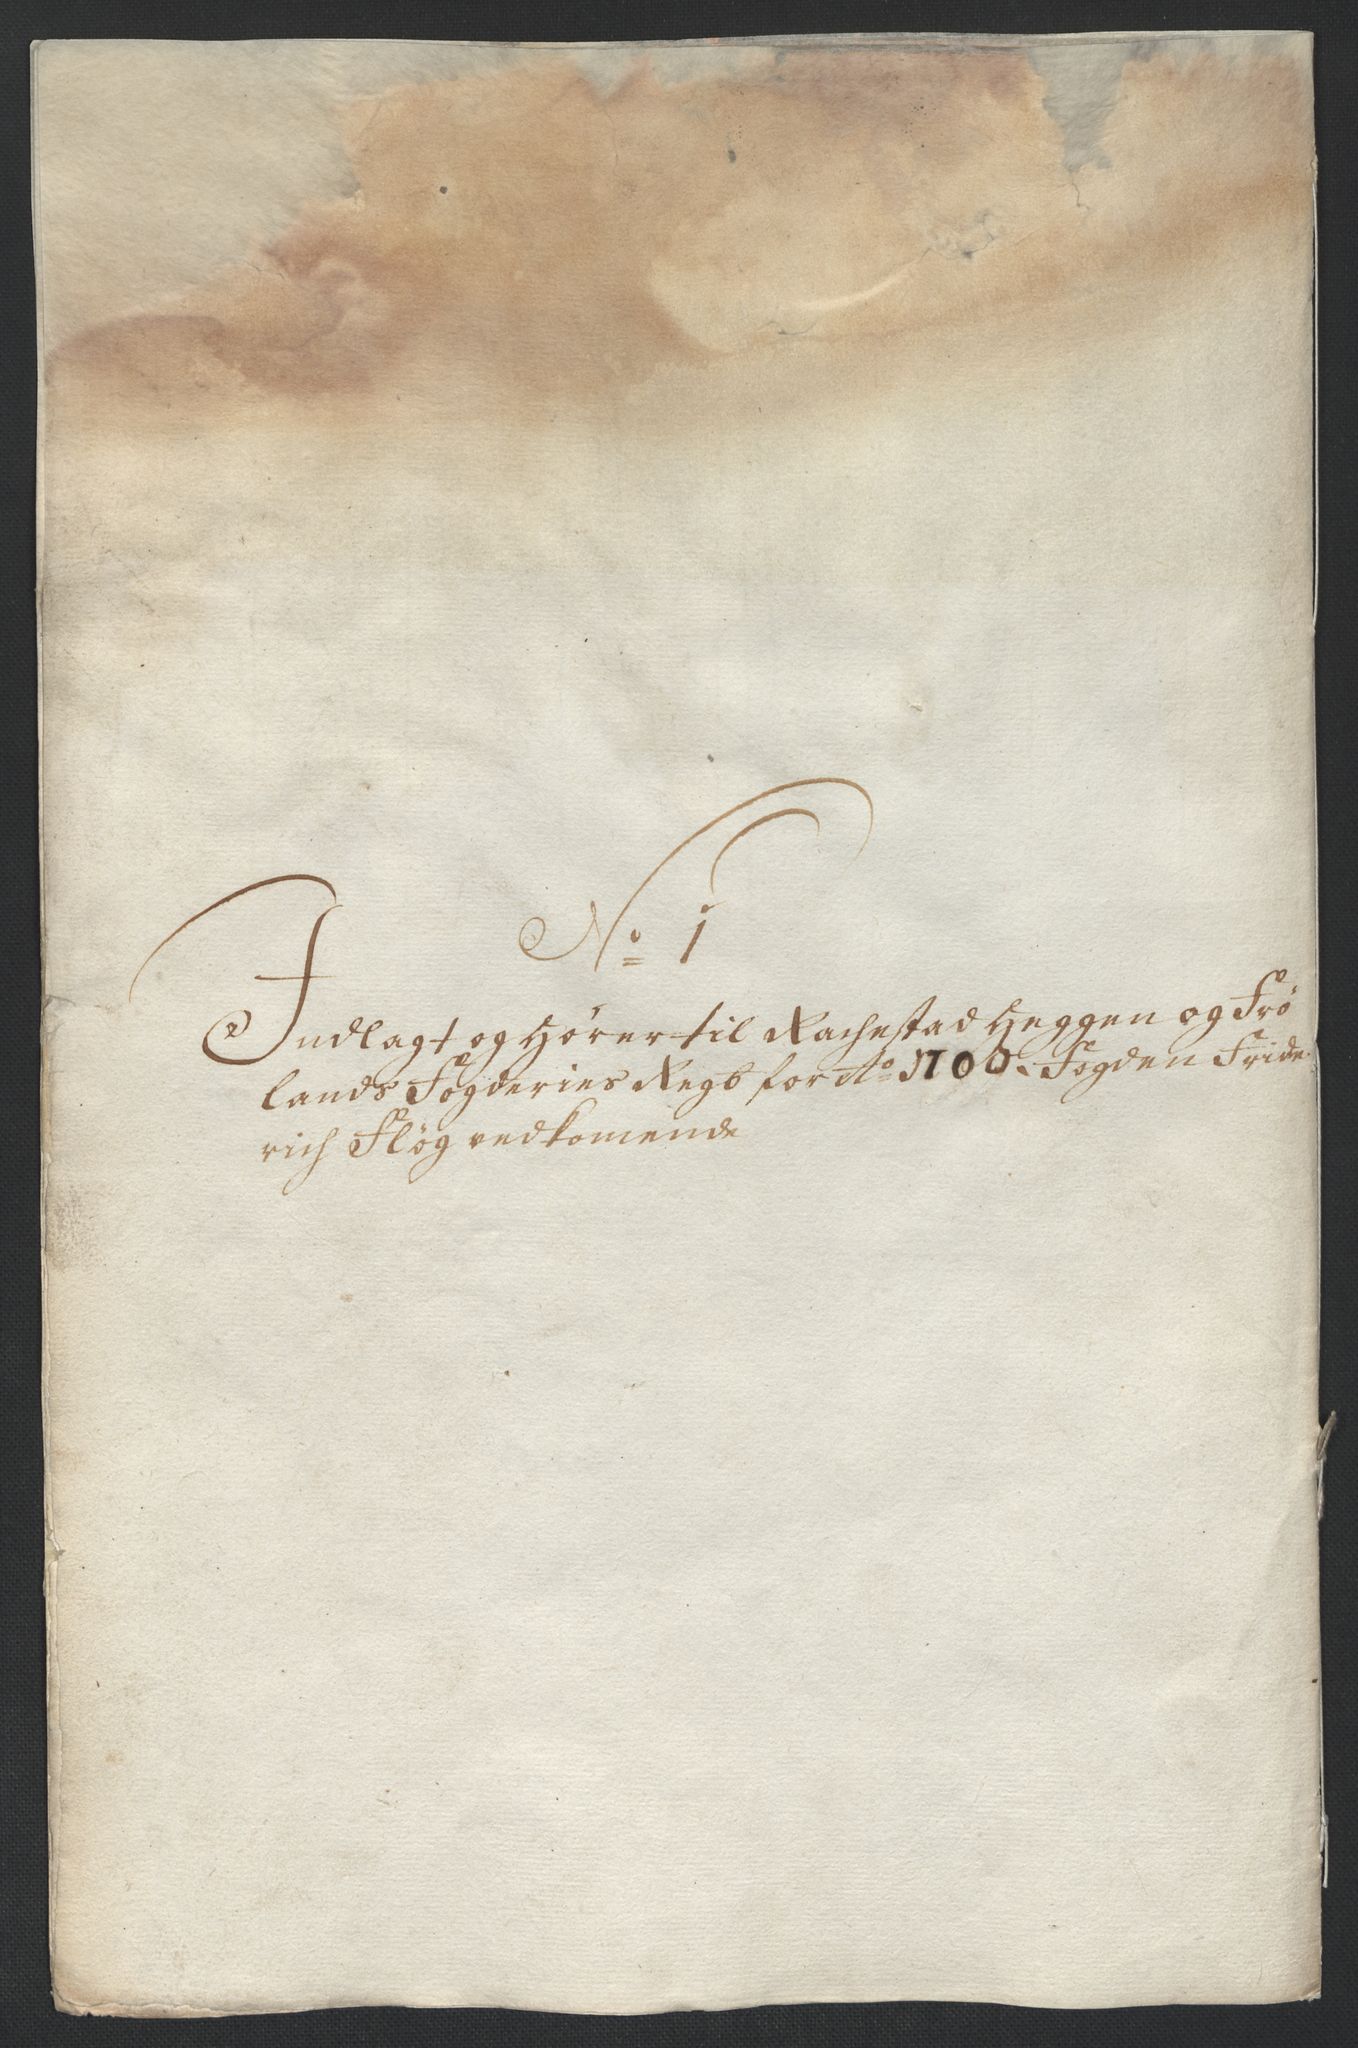 No 1
Indlagt og hører til Rachestad Heggen og Frö
lands Fogderies Regb for Ao 1700. Fogden Fride
rich Flög vedkomende